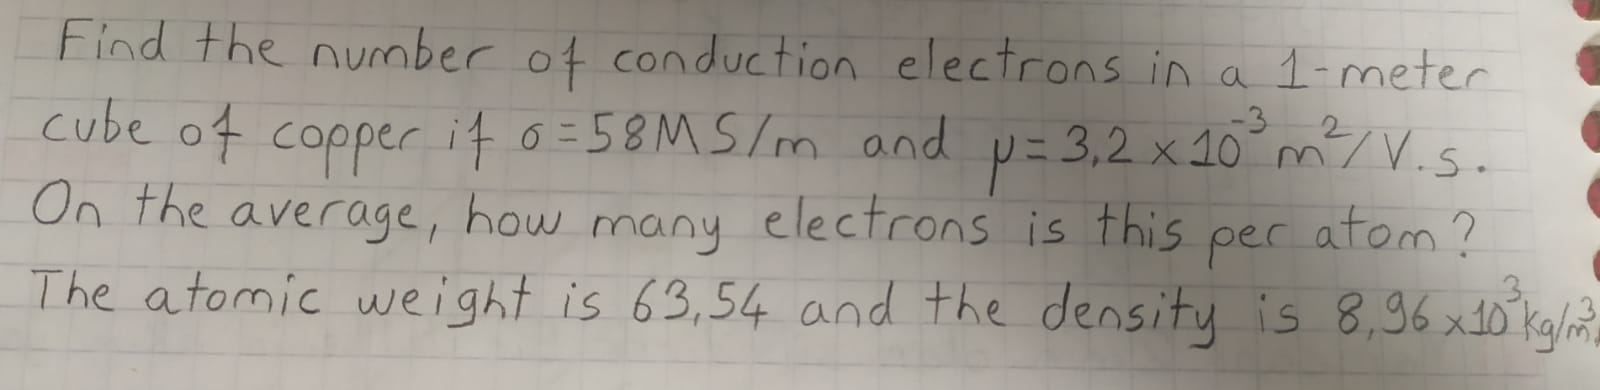 Find the number of conduction electrons in a 1-meter
cube of copper if σ=58MS/m and μ=3,2×10⁻³ m²/V.s.
On the average, how many electrons is this per atom?
The atomic weight is 63,54 and the density is 8,96×10³kg/m³.